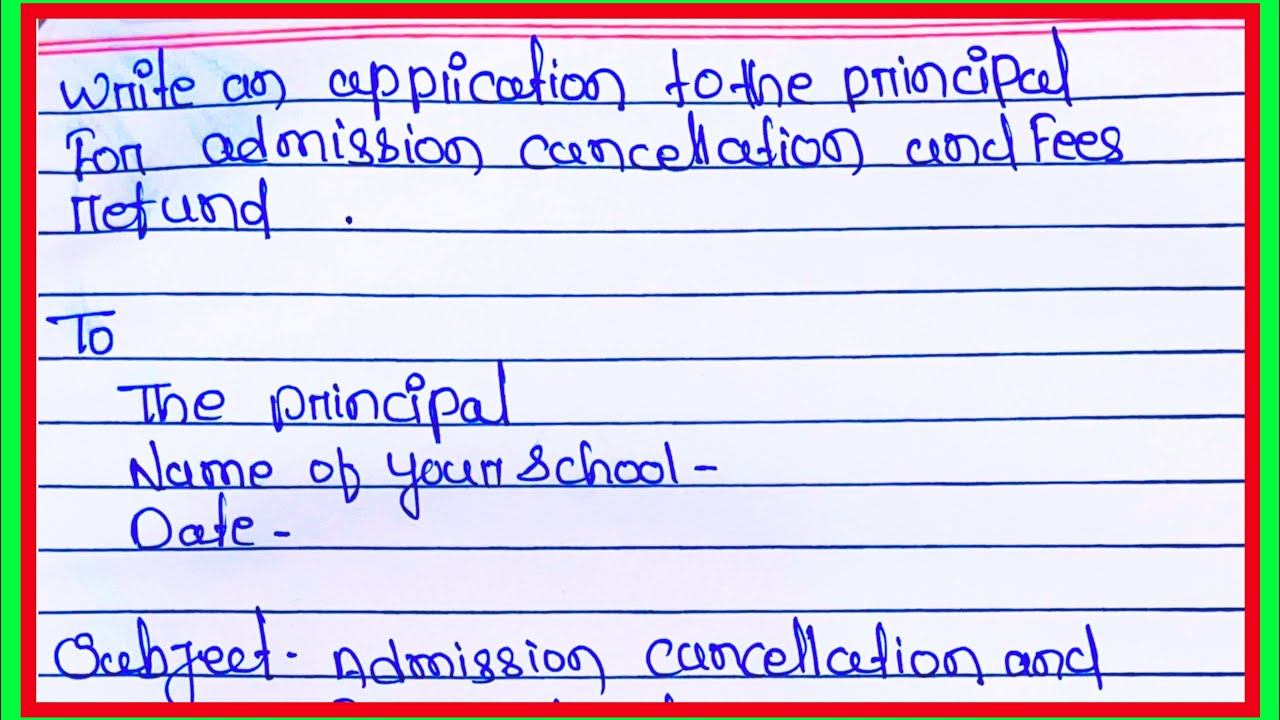 Write an application to the principal
For admission cancellation and Fees
refund .
To
The principal
Name of your school -
Date -
Subject - Admission cancellation and